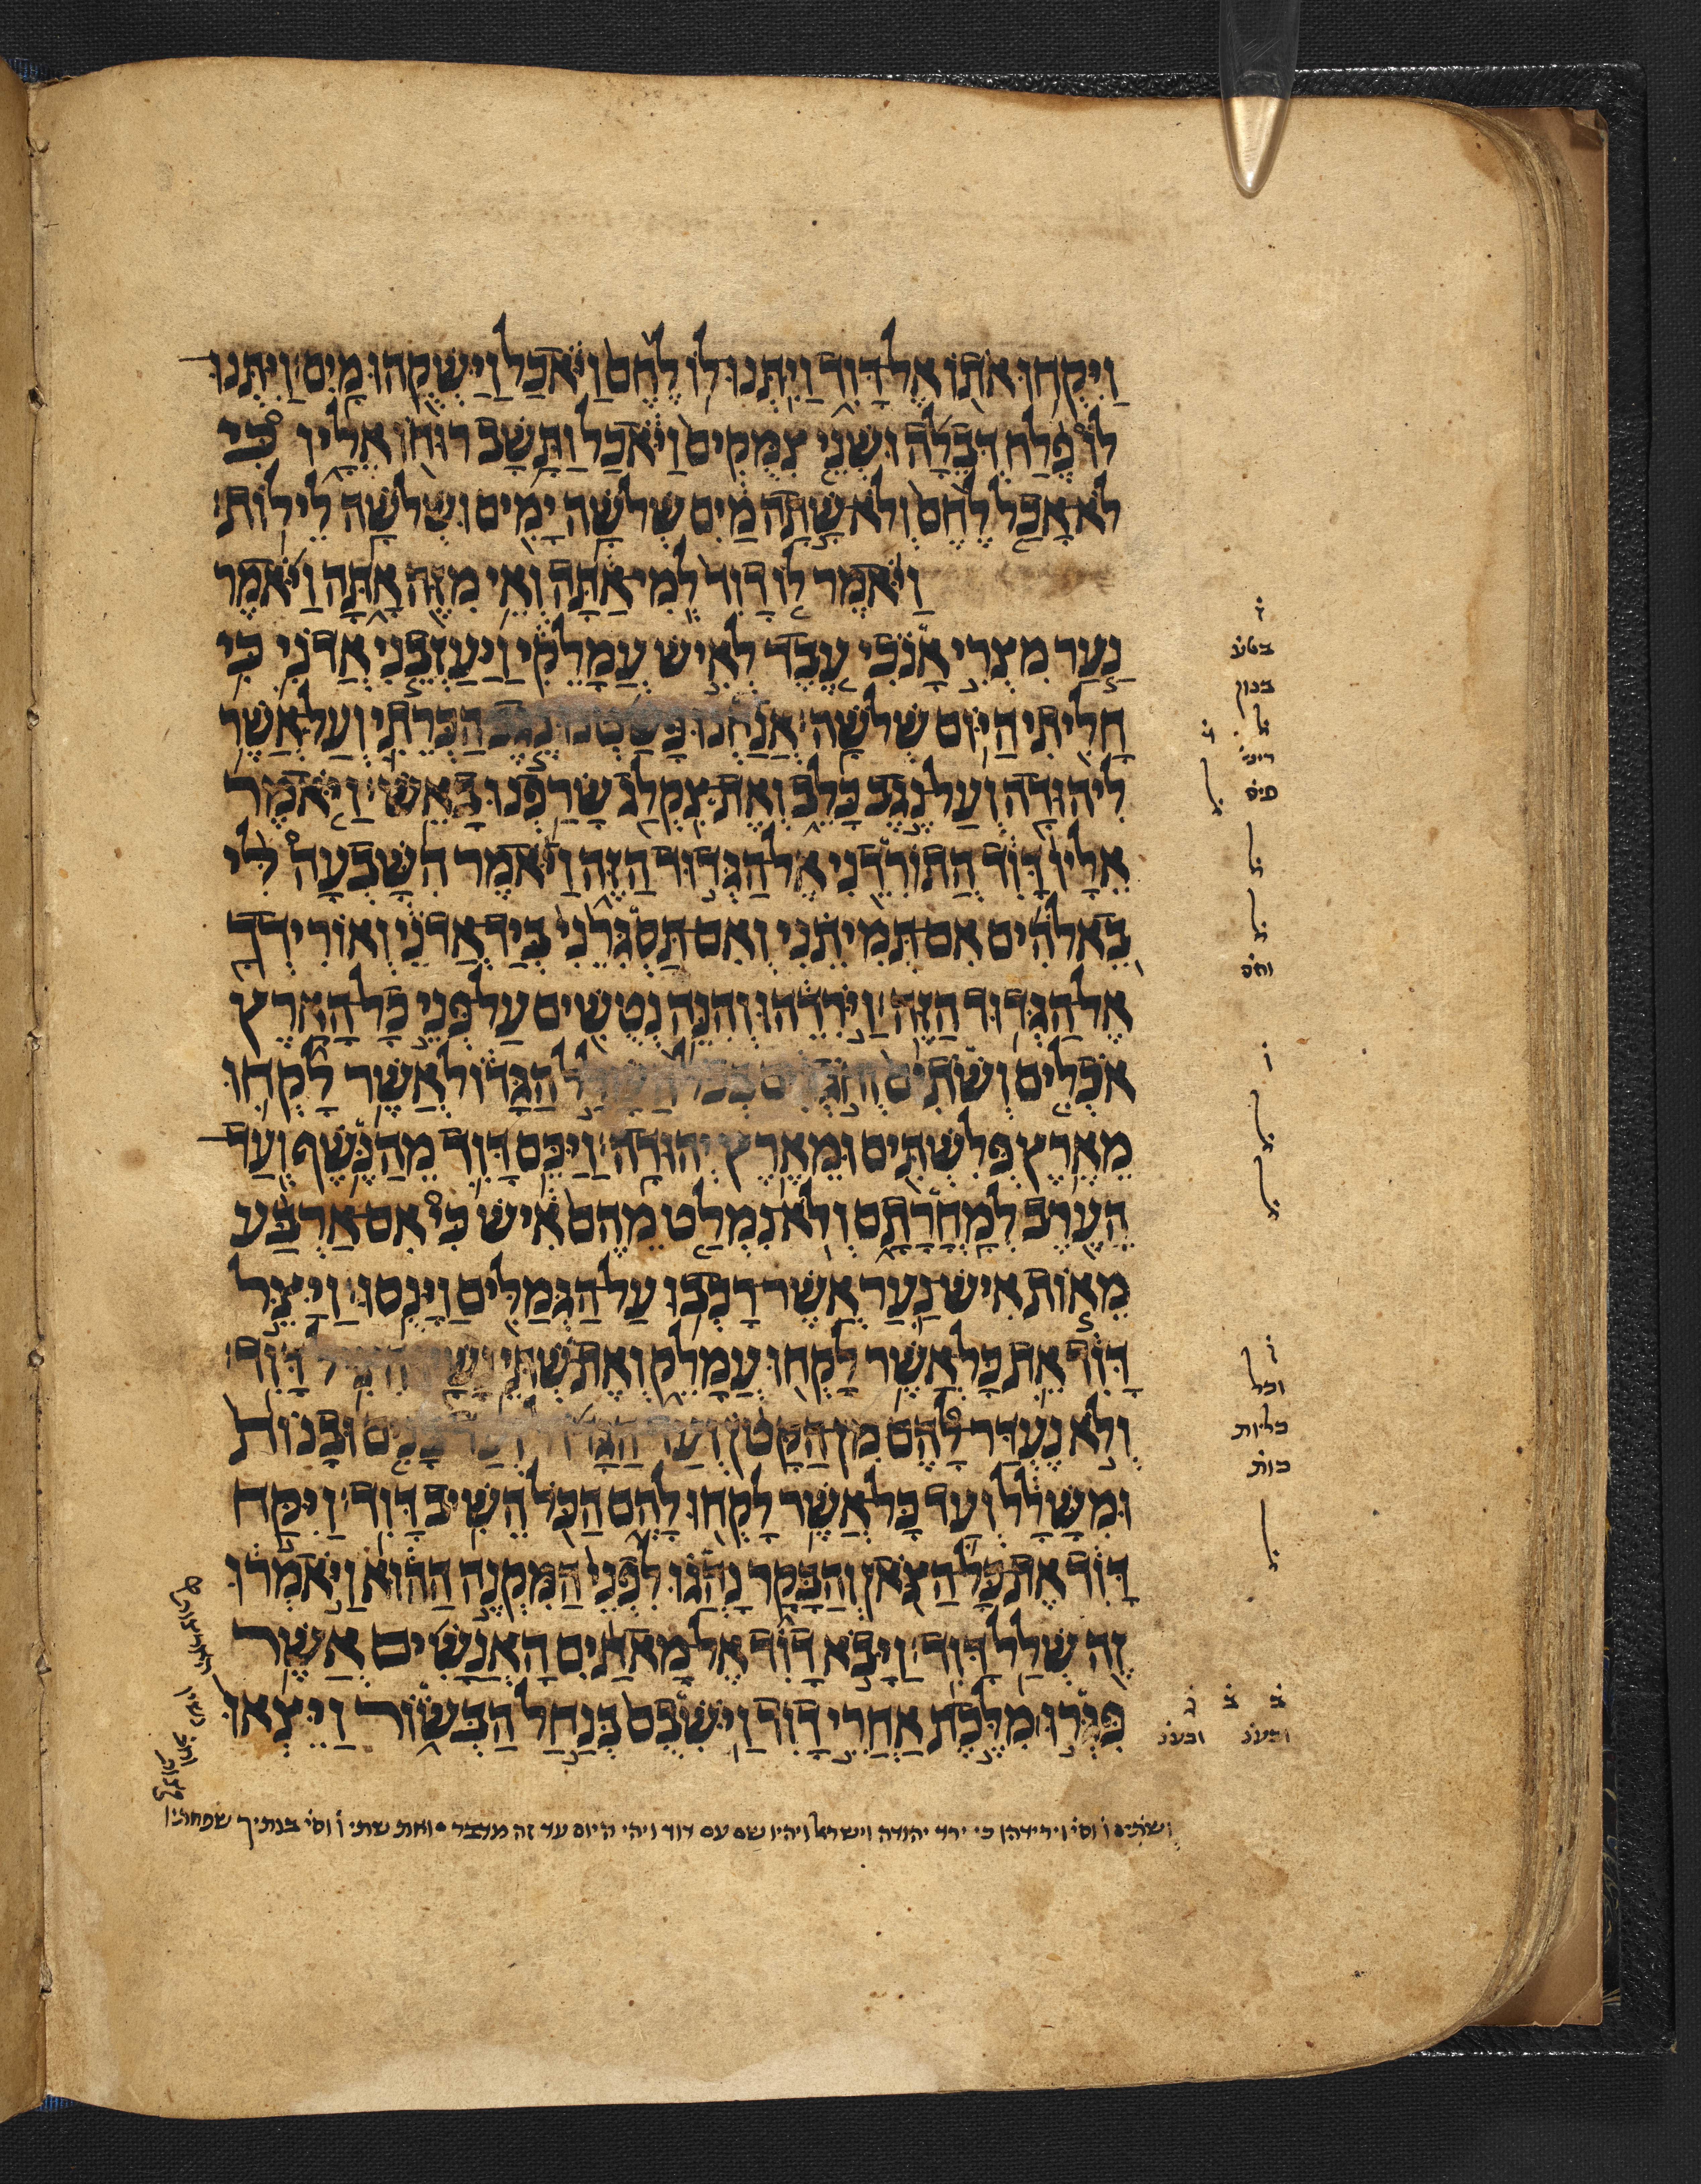 וַיִּקְחוּ אֹתוֹ אֶל־דָּוִד וַיִּתְּנוּ־לוֹ לֶחֶם וַיֹּאכַל וַיַּשְׁקֻהוּ מָיִם׃ וַיִּתְּנוּ
לוֹ פֶלַח דְּבֵלָה וּשְׁנֵי צִמֻּקִים וַיֹּאכַל וַתָּשָׁב רוּחוֹ אֵלָיו כִּי
לֹא אָכַל לֶחֶם וְלֹא שָׁתָה מַיִם שְׁלֹשָׁה יָמִים וּשְׁלֹשָׁה לֵילוֹת׃
וַיֹּאמֶר לוֹ דָוִד לְמִי־אַתָּה וְאֵי מִזֶּה אָתָּה וַיֹּאמֶר
נַעַר מִצְרִי אָנֹכִי עֶבֶד לְאִישׁ עֲמָלֵקִי וַיַּעַזְבֵנִי אֲדֹנִי כִּי
חָלִיתִי הַיּוֹם שְׁלֹשָׁה׃ אֲנַחְנוּ פָּשַׁטְנוּ נֶגֶב הַכְּרֵתִי וְעַל־אֲשֶׁר
לִיהוּדָה וְעַל־נֶגֶב כָּלֵב וְאֶת־צִקְלַג שָׂרַפְנוּ בָאֵשׁ׃ וַיֹּאמֶר
אֵלָיו דָּוִד הֲתוֹרִדֵנִי אֶל־הַגְּדוּד הַזֶּה וַיֹּאמֶר הִשָּׁבְעָה לִּי
בֵאלֹהִים אִם־תְּמִיתֵנִי וְאִם־תַּסְגִּרֵנִי בְּיַד־אֲדֹנִי וְאוֹרִידְךָ
אֶל־הַגְּדוּד הַזֶּה׃ וַיֹּרִדֵהוּ וְהִנֵּה נְטֻשִׁים עַל־פְּנֵי כָל־הָאָרֶץ
אֹכְלִים וְשֹׁתִים וְחֹגְגִים בְּכֹל הַשָּׁלָל הַגָּדוֹל אֲשֶׁר לָקְחוּ
מֵאֶרֶץ פְּלִשְׁתִּים וּמֵאֶרֶץ יְהוּדָה׃ וַיַּכֵּם דָּוִד מֵהַנֶּשֶׁף וְעַד־
הָעֶרֶב לְמָחֳרָתָם וְלֹא־נִמְלַט מֵהֶם אִישׁ כִּי אִם־אַרְבַּע
מֵאוֹת אִישׁ־נַעַר אֲשֶׁר־רָכְבוּ עַל־הַגְּמַלִּים וַיָּנֻסוּ׃ וַיַּצֵּל
דָּוִד אֵת כָּל־אֲשֶׁר לָקְחוּ עֲמָלֵק וְאֶת־שְׁתֵּי נָשָׁיו הִצִּיל דָּוִד׃
וְלֹא נֶעְדַּר־לָהֶם מִן־הַקָּטֹן וְעַד־הַגָּדוֹל וְעַד־בָּנִים וּבָנוֹת
וּמִשָּׁלָל וְעַד כָּל־אֲשֶׁר לָקְחוּ לָהֶם הַכֹּל הֵשִׁיב דָּוִד׃ וַיִּקַּח
דָּוִד אֶת־כָּל־הַצֹּאן וְהַבָּקָר נָהֲגוּ לִפְנֵי הַמִּקְנֶה הַהוּא וַיֹּאמְרוּ
זֶה שְׁלַל דָּוִד׃ וַיָּבֹא דָוִד אֶל־מָאתַיִם הָאֲנָשִׁים אֲשֶׁר
פִּגְּרוּ מִלֶּכֶת אַחֲרֵי דָוִד וַיֹּשִׁבֻם בְּנַחַל הַבְּשׂוֹר וַיֵּצְאוּ
ושתים ו וסי׳ וירידהו כי ירד יהודה וישראל ויהיו שם עם דוד ויהי היום עד זה מדבר ואת שתי ו וסי׳ בנתיך